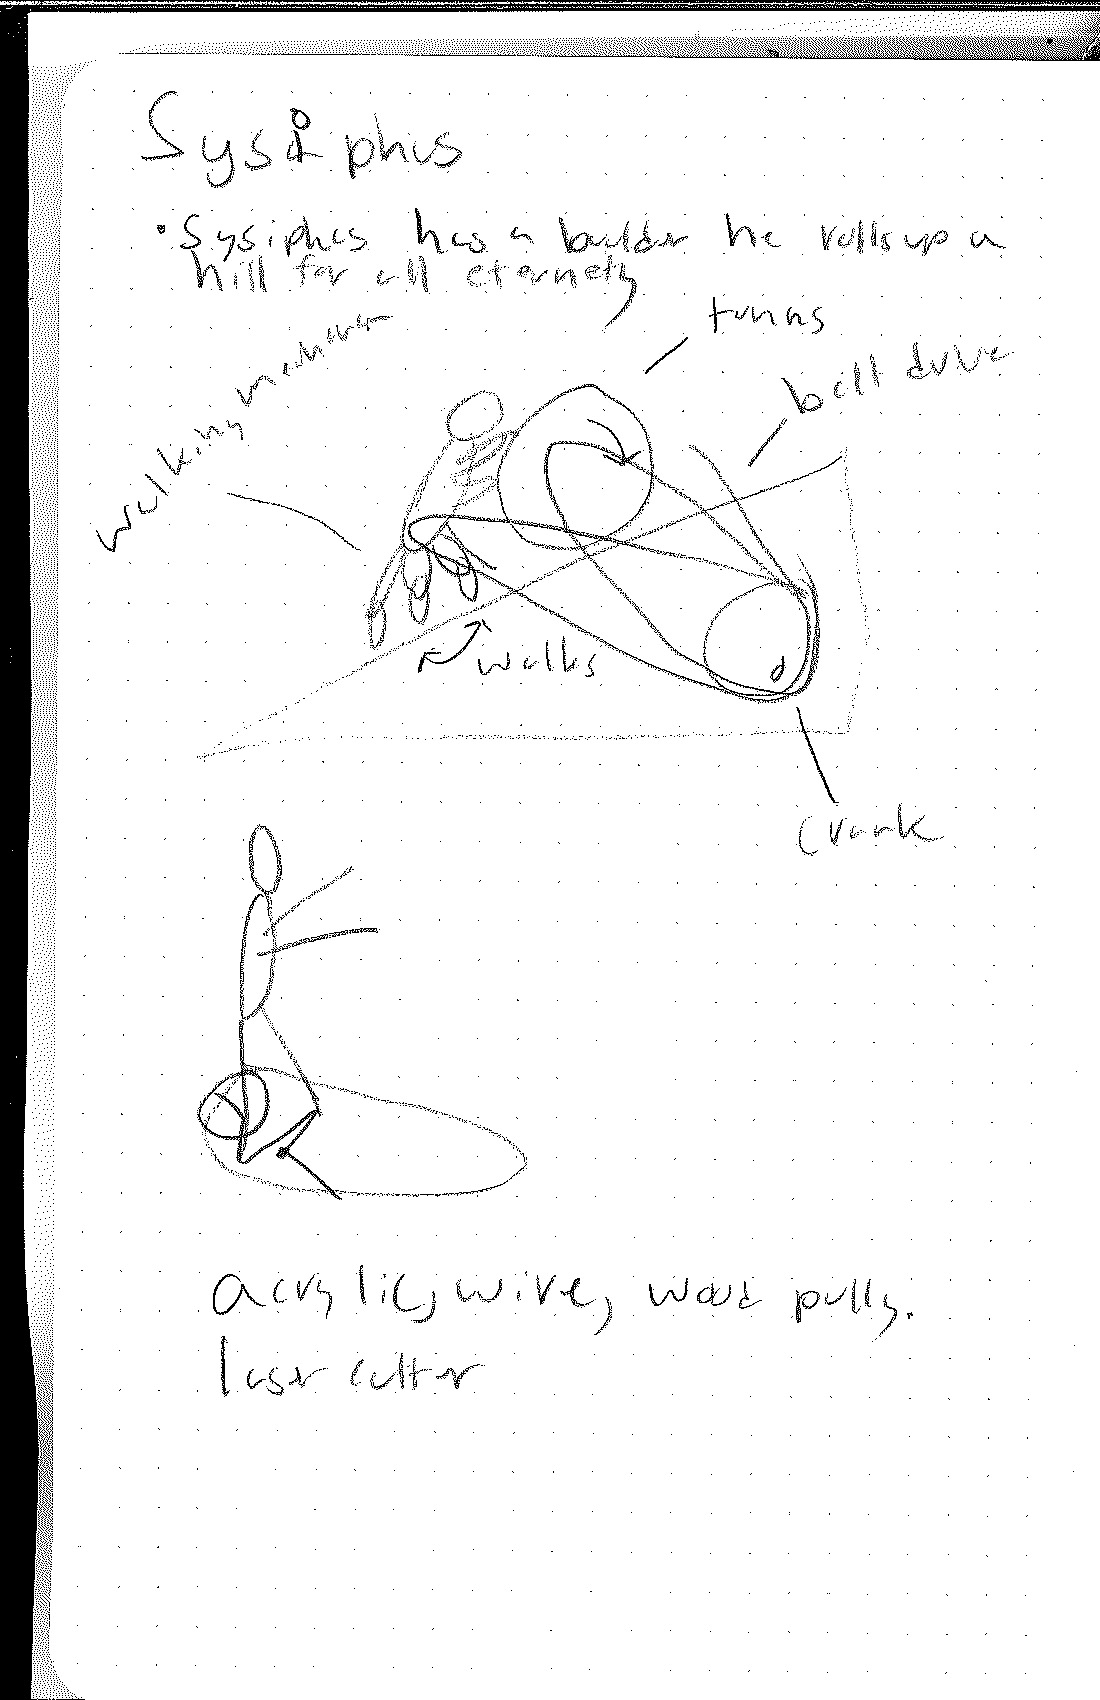 Sysiphus
• Sysiphus has a boulder he rolls up a
hill for all eternety
turns
belt drive
walking
walks
crank
acrylic, wire, wood pully.
laser cutter